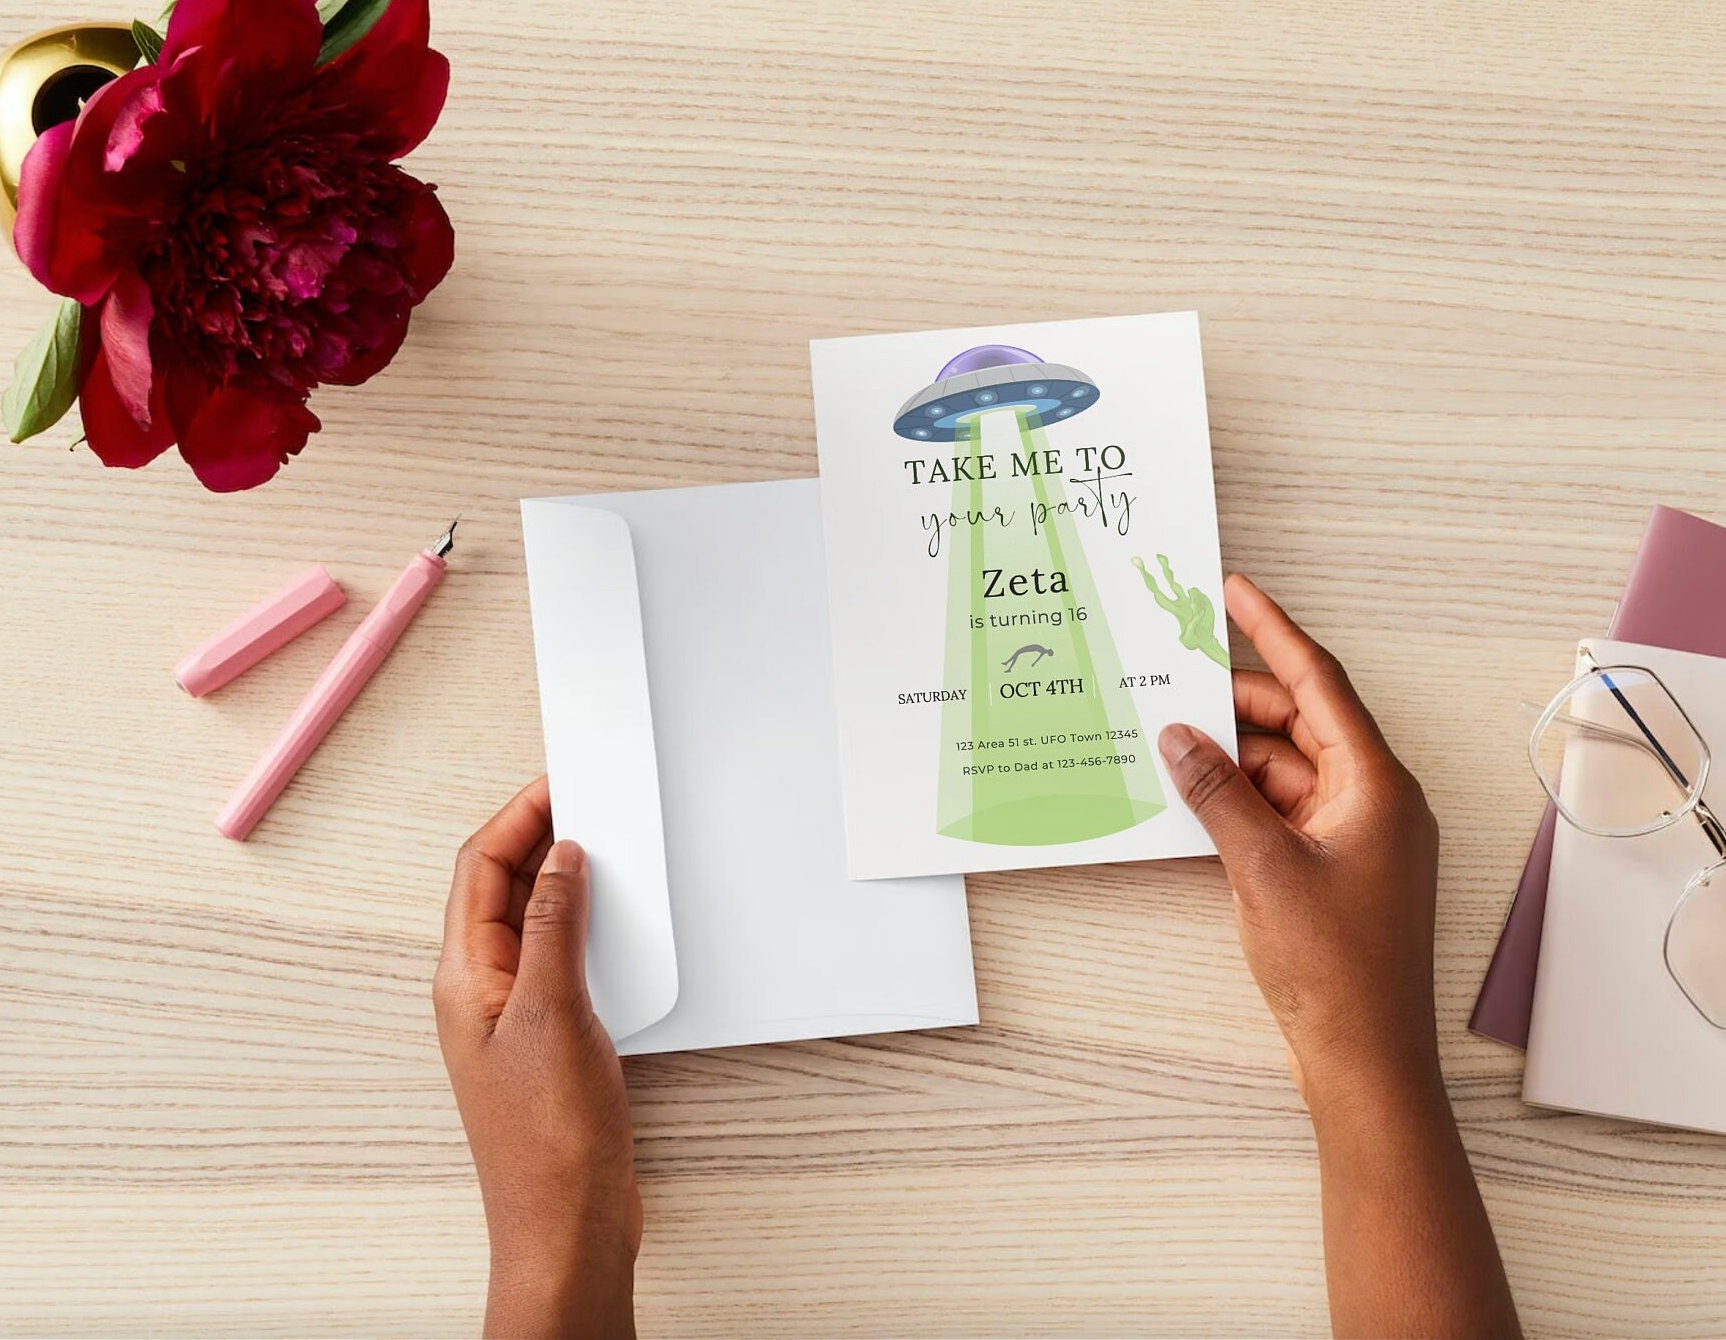 TAKE ME TO
your party
Zeta
is turning 16
SATURDAY OCT 4TH AT 2 PM
123 Area 51 st. UFO Town 12345
RSVP to Dad at 123-456-7890